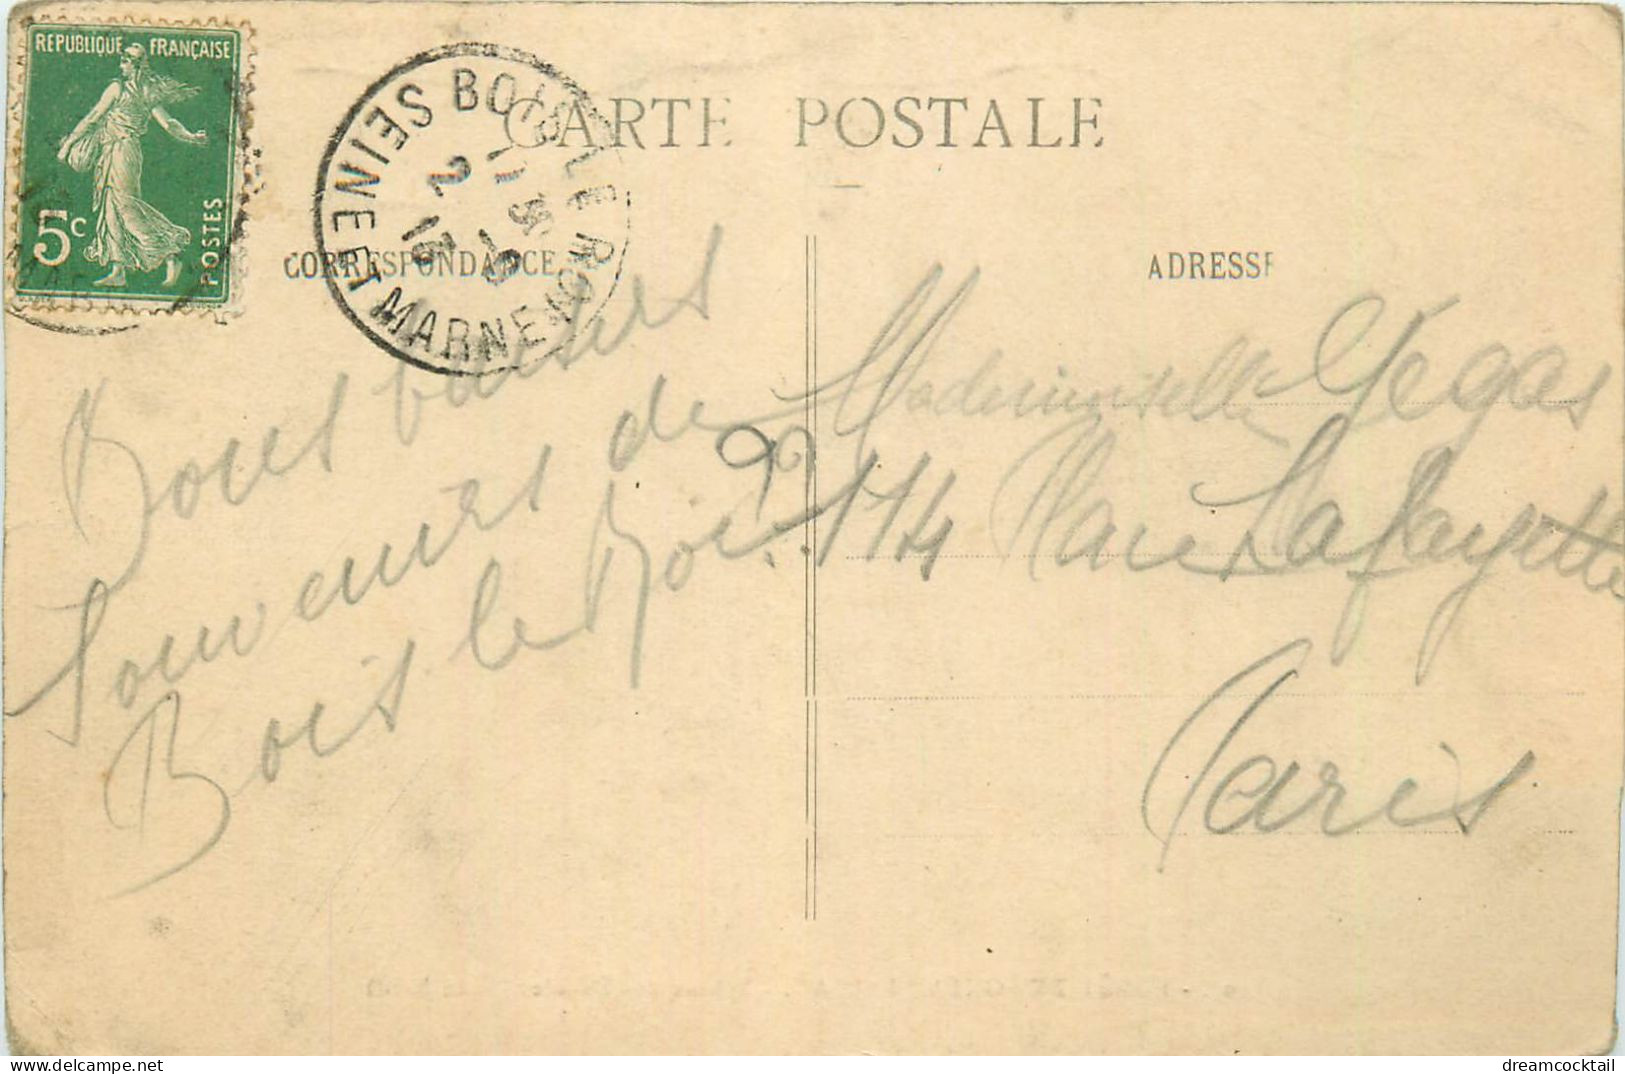 REPUBLIQUE FRANÇAISE
5c
POSTES
BOIS LE ROI
SEINE ET MARNE
2 - 9
13
CARTE POSTALE
CORRESPONDANCE
ADRESSE
Bons baisers
Souvenirs de
Bois le Roi
Mademoiselle
114 Rue Lafayette
Paris
dreamcocktail